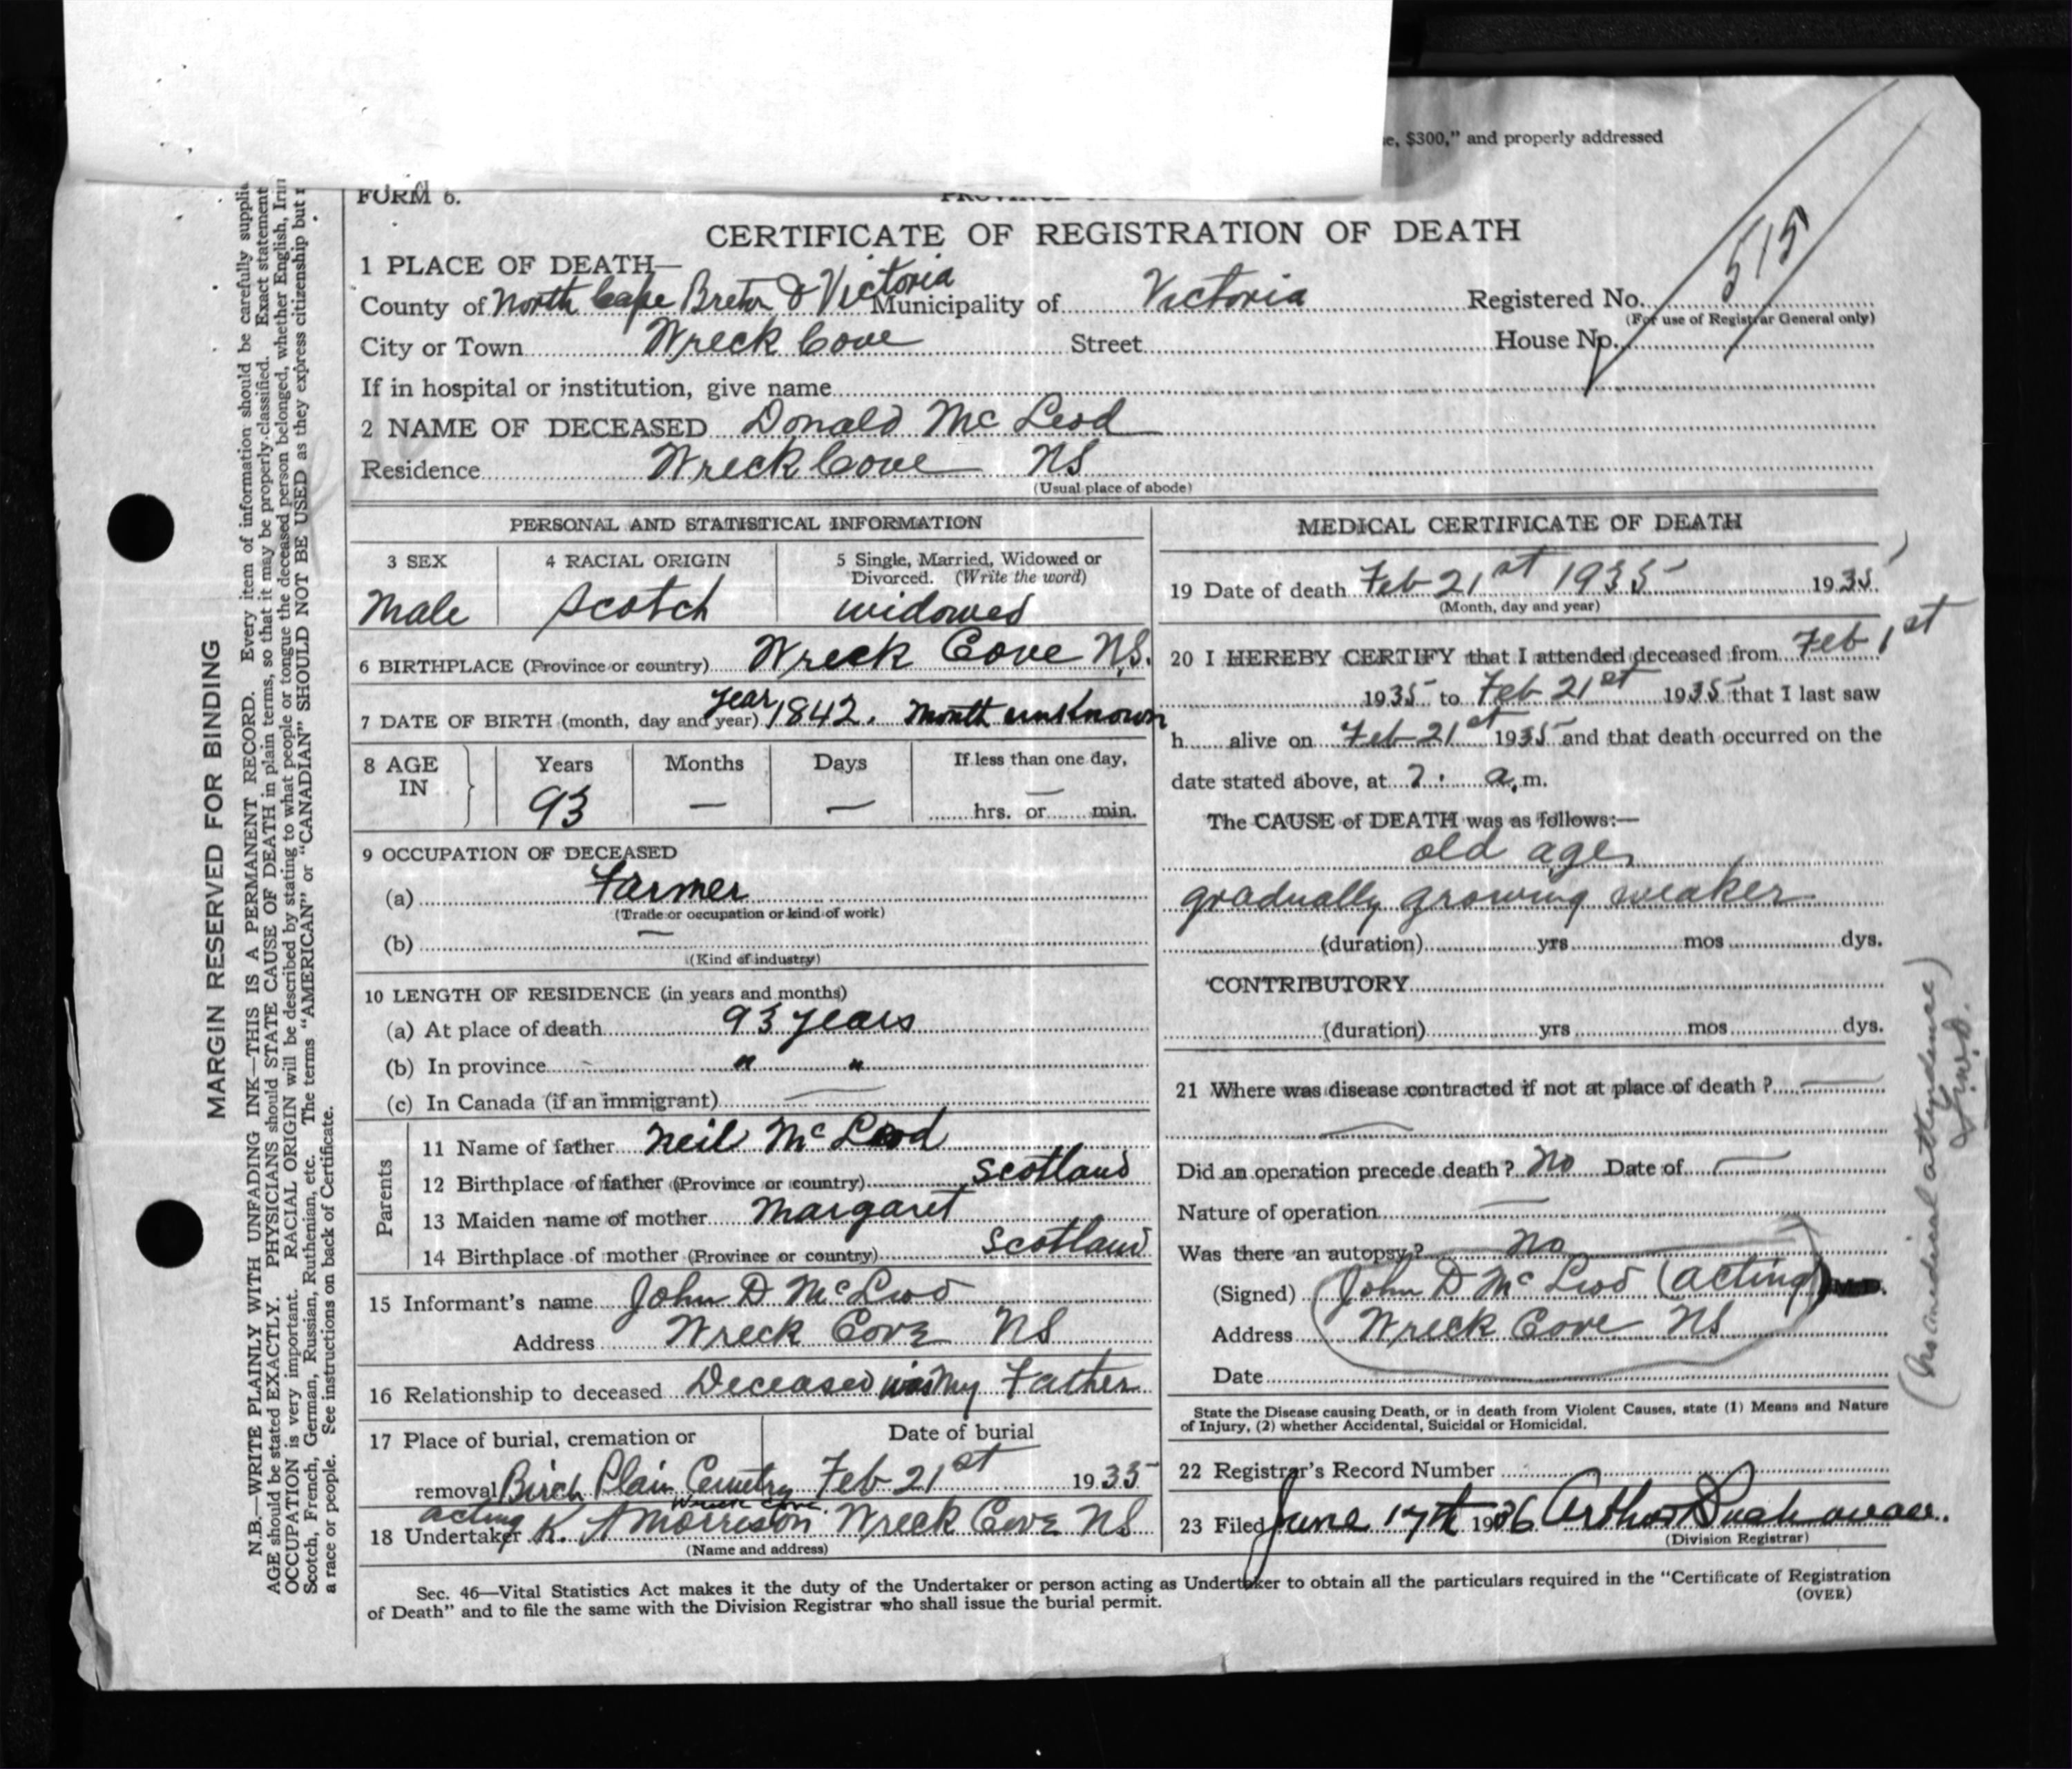 e, $300," and properly addressed
FORM 6.
CERTIFICATE OF REGISTRATION OF DEATH
515
1 PLACE OF DEATH—
County of North Cape Breton & Victoria Municipality of Victoria Registered No.
(For use of Registrar General only)
City or Town Wreck Cove Street House No.
If in hospital or institution, give name
2 NAME OF DECEASED Donald Mc Leod
Residence Wreck Cove NS
(Usual place of abode)
PERSONAL AND STATISTICAL INFORMATION
3 SEX 4 RACIAL ORIGIN 5 Single, Married, Widowed or
Divorced. (Write the word)
Male Scotch widowed
6 BIRTHPLACE (Province or country) Wreck Cove N.S.
7 DATE OF BIRTH (month, day and year) year 1842. Month unknown
8 AGE IN Years Months Days If less than one day,
93 — — — hrs. or min.
9 OCCUPATION OF DECEASED
(a) Farmer
(Trade or occupation or kind of work)
(b) —
(Kind of industry)
10 LENGTH OF RESIDENCE (in years and months)
(a) At place of death 93 years
(b) In province " "
(c) In Canada (if an immigrant) —
Parents
11 Name of father Neil Mc Leod
12 Birthplace of father (Province or country) Scotland
13 Maiden name of mother Margaret
14 Birthplace of mother (Province or country) Scotland
15 Informant's name John D McLeod
Address Wreck Cove NS
16 Relationship to deceased Deceased was My Father
17 Place of burial, cremation or Date of burial
removal Birch Plain Cemetry Feb 21st 1935
acting Wreck Cove
18 Undertaker K. A Morrison Wreck Cove NS
(Name and address)
MEDICAL CERTIFICATE OF DEATH
19 Date of death Feb 21st 1935 1935
(Month, day and year)
20 I HEREBY CERTIFY that I attended deceased from Feb 1st
1935 to Feb 21st 1935 that I last saw
h alive on Feb 21st 1935 and that death occurred on the
date stated above, at 7: a.m.
The CAUSE of DEATH was as follows:—
old age
gradually growing weaker
(duration) yrs mos dys.
CONTRIBUTORY
(duration) yrs mos dys.
21 Where was disease contracted if not at place of death ? —
—
Did an operation precede death ? No Date of —
Nature of operation —
Was there an autopsy? No
(Signed) John D McLeod (acting) M.D.
Address Wreck Cove NS
Date
State the Disease causing Death, or in death from Violent Causes, state (1) Means and Nature
of Injury, (2) whether Accidental, Suicidal or Homicidal.
22 Registrar's Record Number
23 Filed June 17th 1936 Arthur
(Division Registrar)
Sec. 46—Vital Statistics Act makes it the duty of the Undertaker or person acting as Undertaker to obtain all the particulars required in the "Certificate of Registration
of Death" and to file the same with the Division Registrar who shall issue the burial permit.
(OVER)
MARGIN RESERVED FOR BINDING
N.B.—WRITE PLAINLY WITH UNFADING INK—THIS IS A PERMANENT RECORD. Every item of information should be carefully supplie
AGE should be stated EXACTLY. PHYSICIANS should STATE CAUSE OF DEATH in plain terms, so that it may be properly classified. Exact statement
OCCUPATION is very important. RACIAL ORIGIN will be described by stating to what people or tongue the deceased person belonged, whether English, Iri
Scotch, French, German, Russian, Ruthenian, etc. The terms "AMERICAN" or "CANADIAN" SHOULD NOT BE USED as they express citizenship but
a race or people. See instructions on back of Certificate.
(No medical attendance)